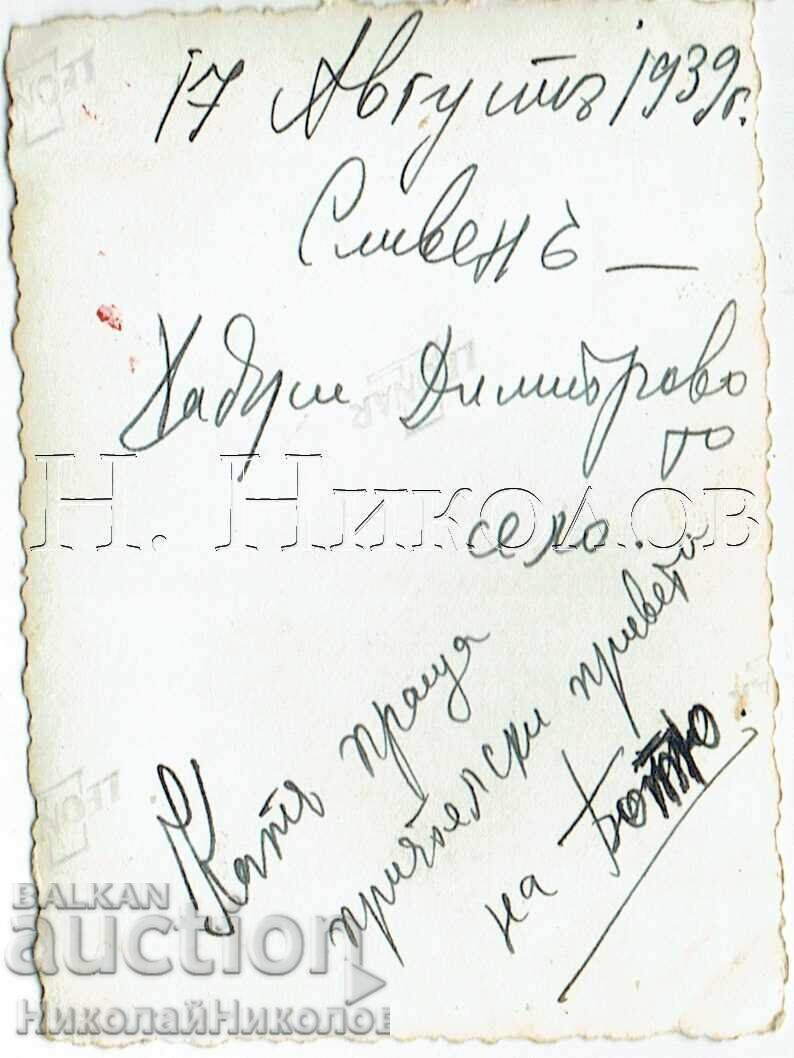 17 Августъ 1939 г.
Сливенъ —
Хаджи Димитрово
то
село.
Катя праща
приятелски привети
на Ботю.
Н. Николов
BALKAN
auction
НиколайНиколов